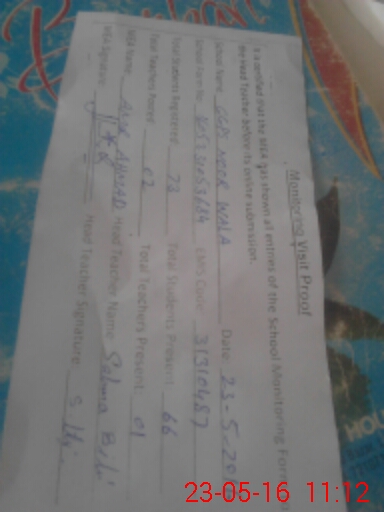 Monitoring Visit Proof
It is certified that the MEA has shown all entries of the School Monitoring Form to
the Head Teacher before its online submission.
School Name: GGPS NOOR WALA Date: 23-5-20
School Form No: EMIS Code: 31310487
Total Students Registered: 73 Total Students Present: 66
Total Teachers Posted: 02 Total Teachers Present: 01
MEA Name: AHMAD Head Teacher Name: Salma Bibi
MEA Signature: Head Teacher Signature:
HOL
23-05-16 11:12